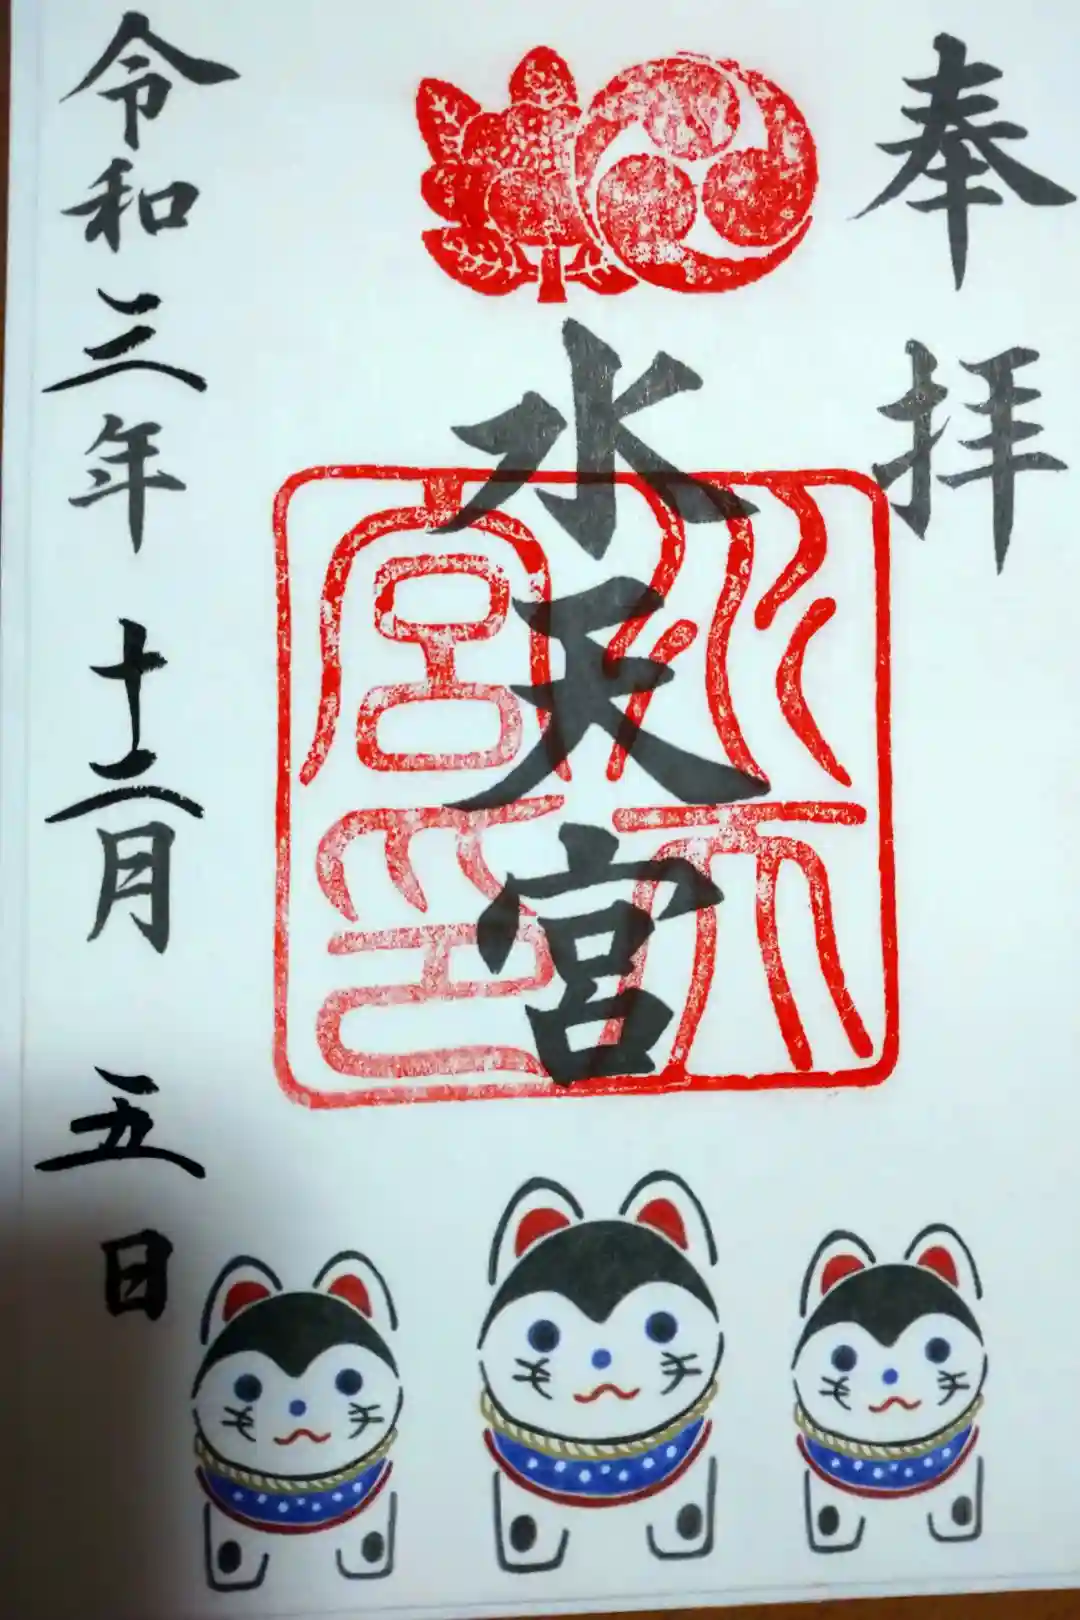 奉拝
水天宮
水天宮印
令和三年十二月五日